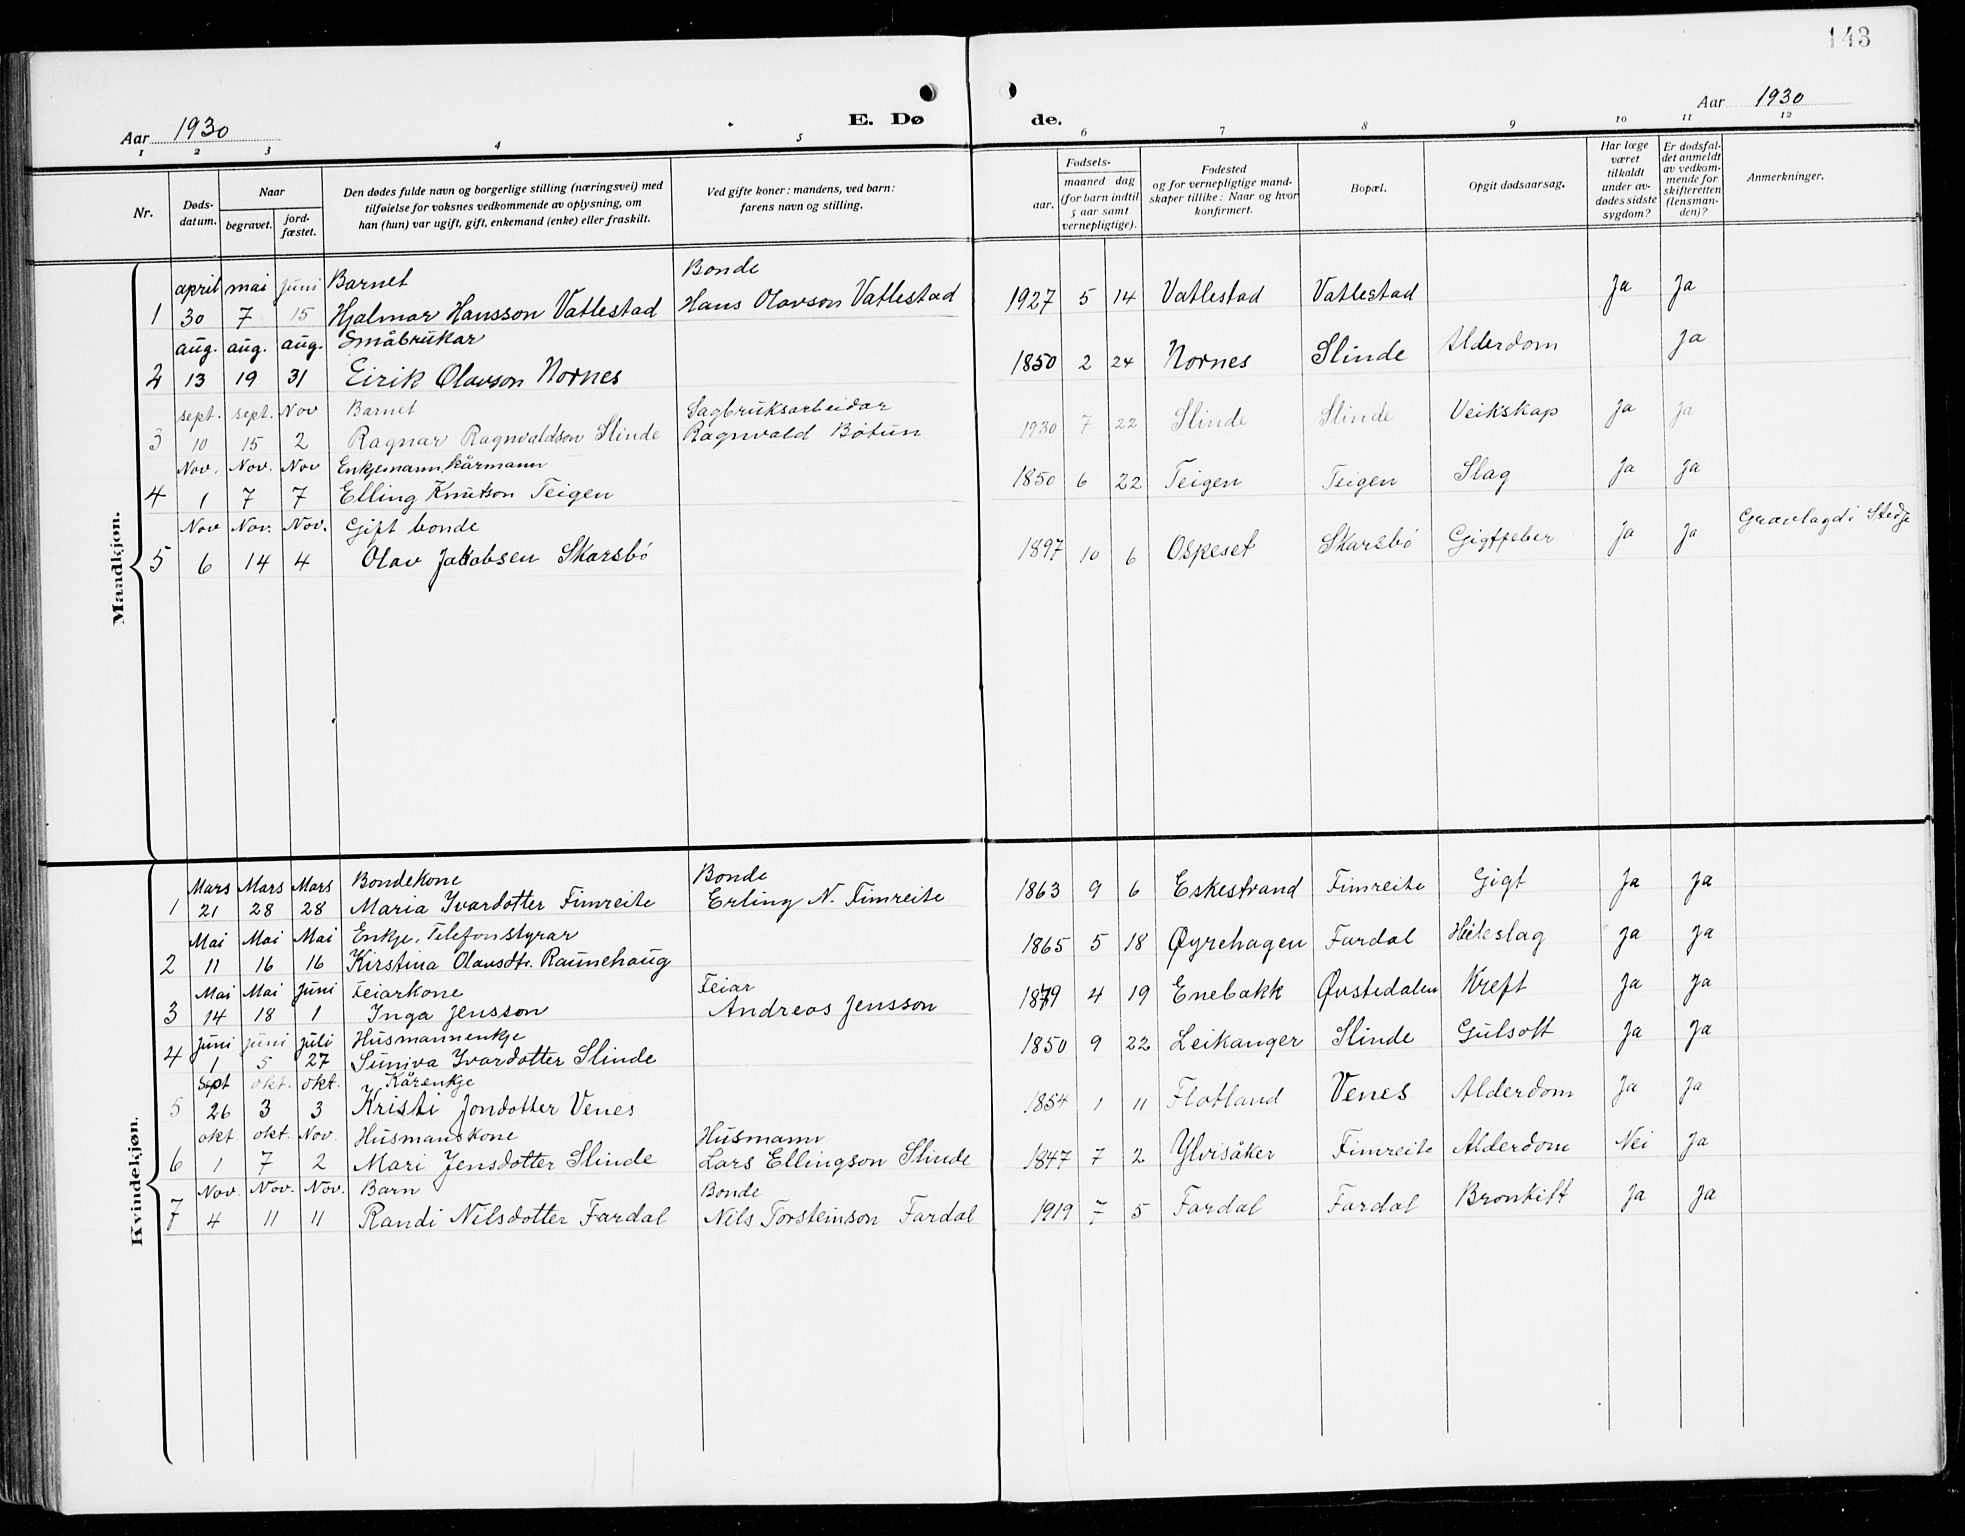 143
Aar 1930 E. Dø de. Aar 1930
1 2 3 4 5 6 7 8 9 10 11 12
Nr. Døds-datum. Naar begravet. jord-fæstet. Den dødes fulde navn og borgerlige stilling (næringsvei) med tilføielse for voksnes vedkommende av oplysning, om han (hun) var ugift, gift, enkemand (enke) eller fraskilt. Ved gifte koner: mandens, ved barn: farens navn og stilling. Fødsels- aar. maaned dag (for barn indtil 5 aar samt vernepligtige). Fødested og for vernepligtige mandskaper tillike: Naar og hvor konfirmert. Bopæl. Opgit dødsaarsag. Har læge været tilkaldt under avdødes sidste sygdom? Er dødsfaldet anmeldt av vedkommende for skifteretten (lensmanden)? Anmerkninger.
Maadkjøn.
april mai juni Barnet Bonde
1 30 7 15 Hjalmar Hansson Vatlestad Hans Olavson Vatlestad 1927 5 14 Vatlestad Vatlestad Ja Ja
aug. aug. aug. Småbrukar
2 13 19 31 Eirik Olavson Nornes 1850 2 24 Nornes Slinde Alderdom Ja
sept. sept. Nov Barnet Sagbruksarbeidar
3 10 15 2 Ragnar Ragnvaldson Slinde Ragnvald Bøtun 1930 7 22 Slinde Slinde Veikskap Ja Ja
Nov. Nov. Nov Enkjemann, kårmann
4 1 7 7 Elling Knutson Teigen 1850 6 22 Teigen Teigen Slag Ja Ja
Nov Nov. Nov. Gift bonde
5 6 14 4 Olav Jakobsen Skarsbø 1897 10 6 Ospeset Skarsbø Gigtfeber Ja Ja Gravlagd i Stedje
Kvindekjøn.
Mars Mars Mars Bondekone Bonde
1 21 28 28 Maria Ivardotter Fimreite Erling N. Fimreite 1863 9 6 Eskestrand Fimreite Gigt Ja Ja
Mai Mai Mai Enkje. Telefonstyrar
2 11 16 16 Kirstina Olavsdtr. Raunehaug 1865 5 18 Øyrehagen Fardal Heileslag Ja Ja
Mai Mai Juni Feiarkone Feiar
3 14 18 1 Inga Jensson Andreas Jensson 1879 4 19 Enebakk Øvstedalen Kreft Ja Ja
Juni juni juli Husmannenkje
4 1 5 27 Suniva Ivardotter Slinde 1850 9 22 Leikanger Slinde Gulsott Ja Ja
Sept okt. okt. Kårenkje
5 26 3 3 Kristi Jondotter Venes 1854 1 11 Flatland Venes Alderdom Ja Ja
okt. okt. Nov. Husmanskone Husmann
6 1 7 2 Mari Jensdotter Slinde Lars Ellingson Slinde 1847 7 2 Ylvisåker Fimreite Alderdom Nei Ja
Nov. Nov. Nov. Barn Bonde
7 4 11 11 Randi Nilsdotter Fardal Nils Torsteinson Fardal 1919 7 5 Fardal Fardal Bronkitt Ja Ja